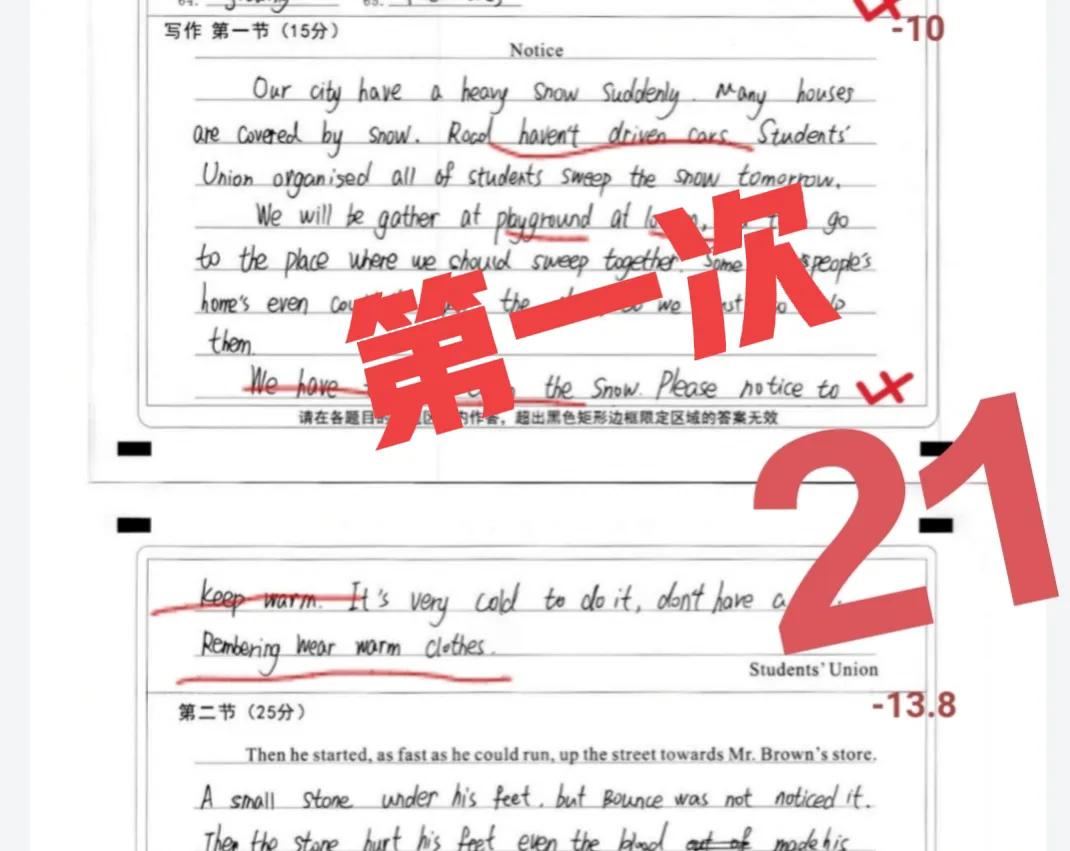 写作 第一节（15分）
-10
Notice
Our city have a heavy snow suddenly. Many houses
are covered by snow. Road haven't driven cars. Students'
Union organised all of students sweep the snow tomorrow.
We will be gather at playground at go
to the place where we should sweep together. Some people's
home's even the we
them.
We have the snow. Please notice to
请在各题目的 作答，超出黑色矩形边框限定区域的答案无效
第一次
21
keep warm. It's very cold to do it, don't have a
Rembering wear warm clothes.
Students' Union
第二节（25分）
-13.8
Then he started, as fast as he could run, up the street towards Mr. Brown's store.
A small stone under his feet, but Bounce was not noticed it.
Then the stone hurt his feet even the blood out of made his